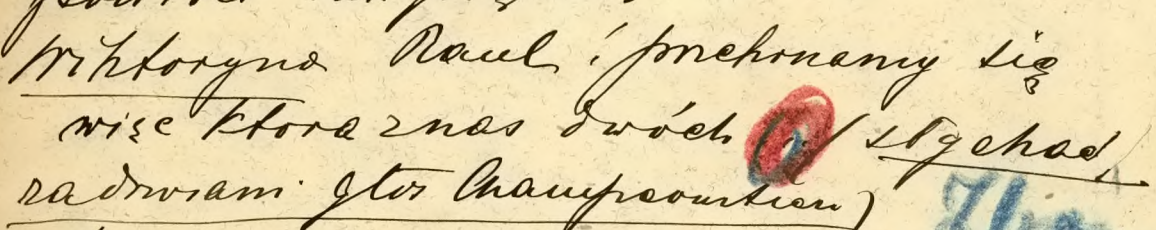 Wiktoryna Raul! przekonamy się
więc ktora z nas dwóch (słychać
za drzwiami głos Champcourtieu)